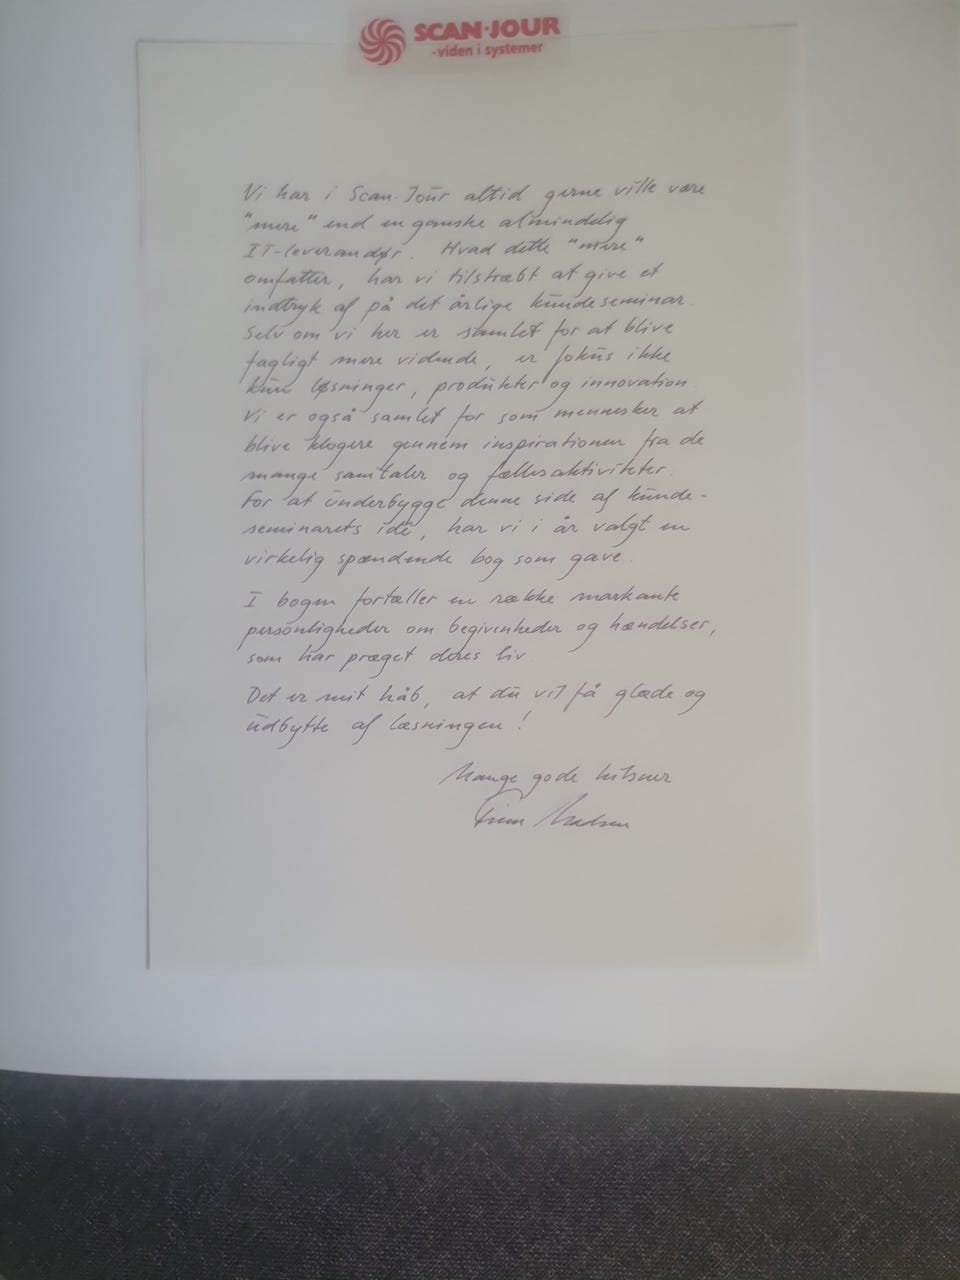 SCAN·JOUR
-viden i systemer
Vi har i Scan·Jour altid gerne ville være
"mere" end en ganske almindelig
IT-leverandør. Hvad dette "mere"
omfatter, har vi tilstræbt at give et
indtryk af på det årlige kundeseminar.
Selv om vi her er samlet for at blive
fagligt mere vidende, er fokus ikke
kun løsninger, produkter og innovation.
Vi er også samlet for som mennesker at
blive klogere gennem inspirationen fra de
mange samtaler og fællesaktiviteter.
For at underbygge denne side af kunde-
seminarets idé, har vi i år valgt en
virkelig spændende bog som gave.
I bogen fortæller en række markante
personligheder om begivenheder og hændelser,
som har præget deres liv.
Det er mit håb, at du vil få glæde og
udbytte af læsningen!
Mange gode hilsner
Madsen